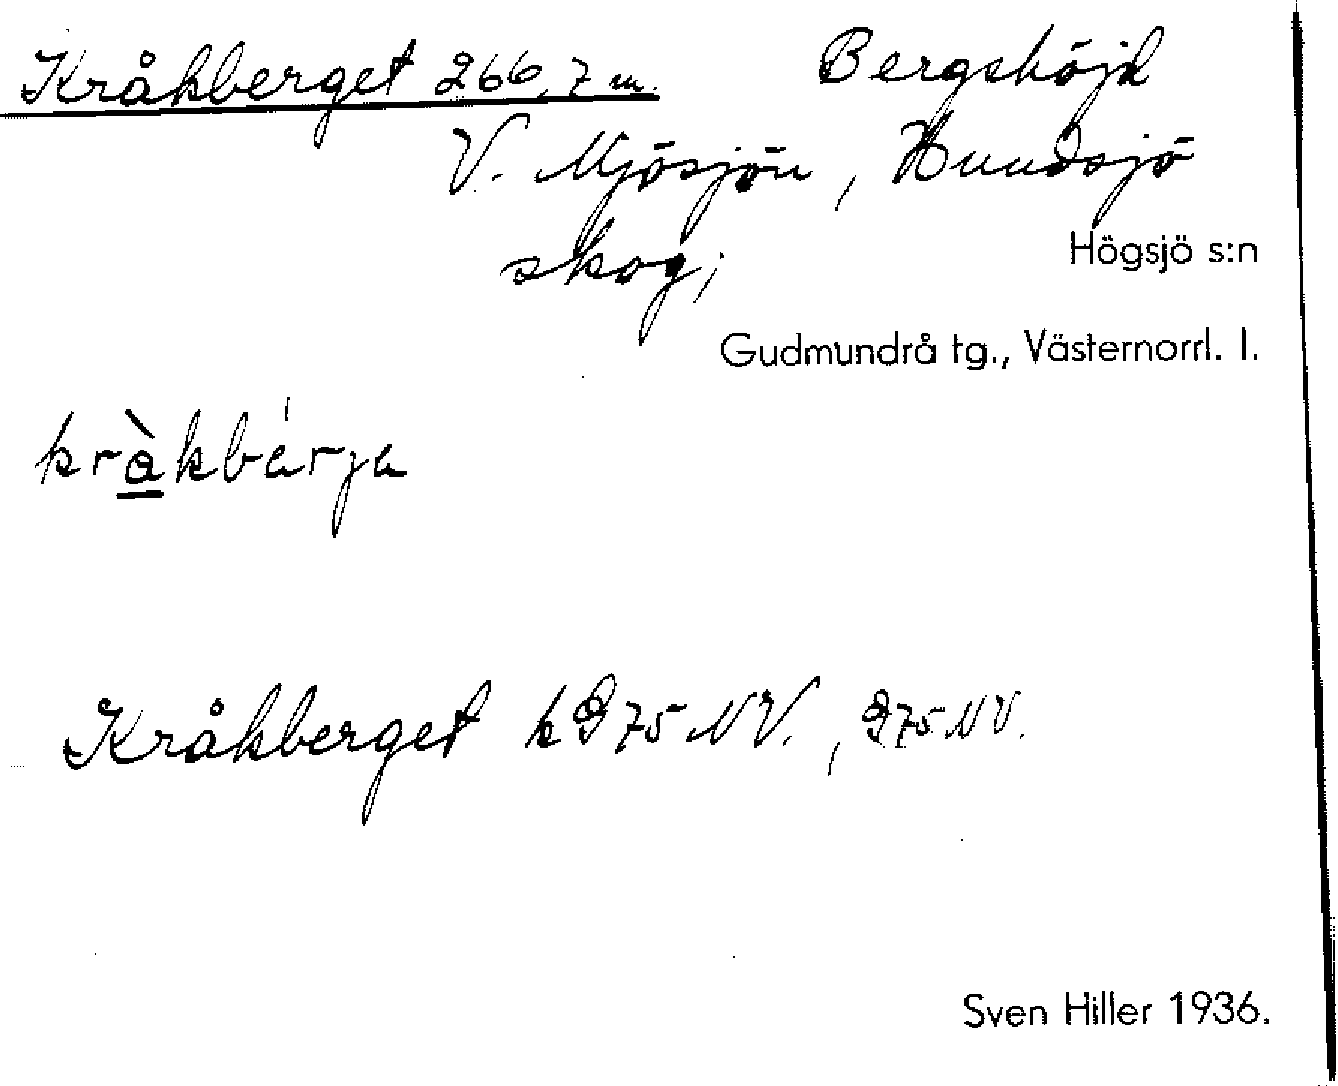 Kråkberget 266,7 m. Bergshöjd
V. Mjösjön, Hundsjö
skog;
Högsjö s:n
Gudmundrå tg., Västernorrl. l.
kràkbárja
Kråkberget 75 NV., 975 NV.
Sven Hiller 1936.